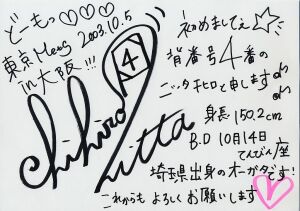 どーもっ♡♡♡
東京Mens 2003.10.5
in 大阪!!!
Chihiro Nitta
4
初めましてぇ☆
背番号4番の
ニッタチヒロと申します♪
身長150.2cm
B.D 10月14日
てんびん座
埼玉県出身のオーガタです!
これからもよろしくお願いします